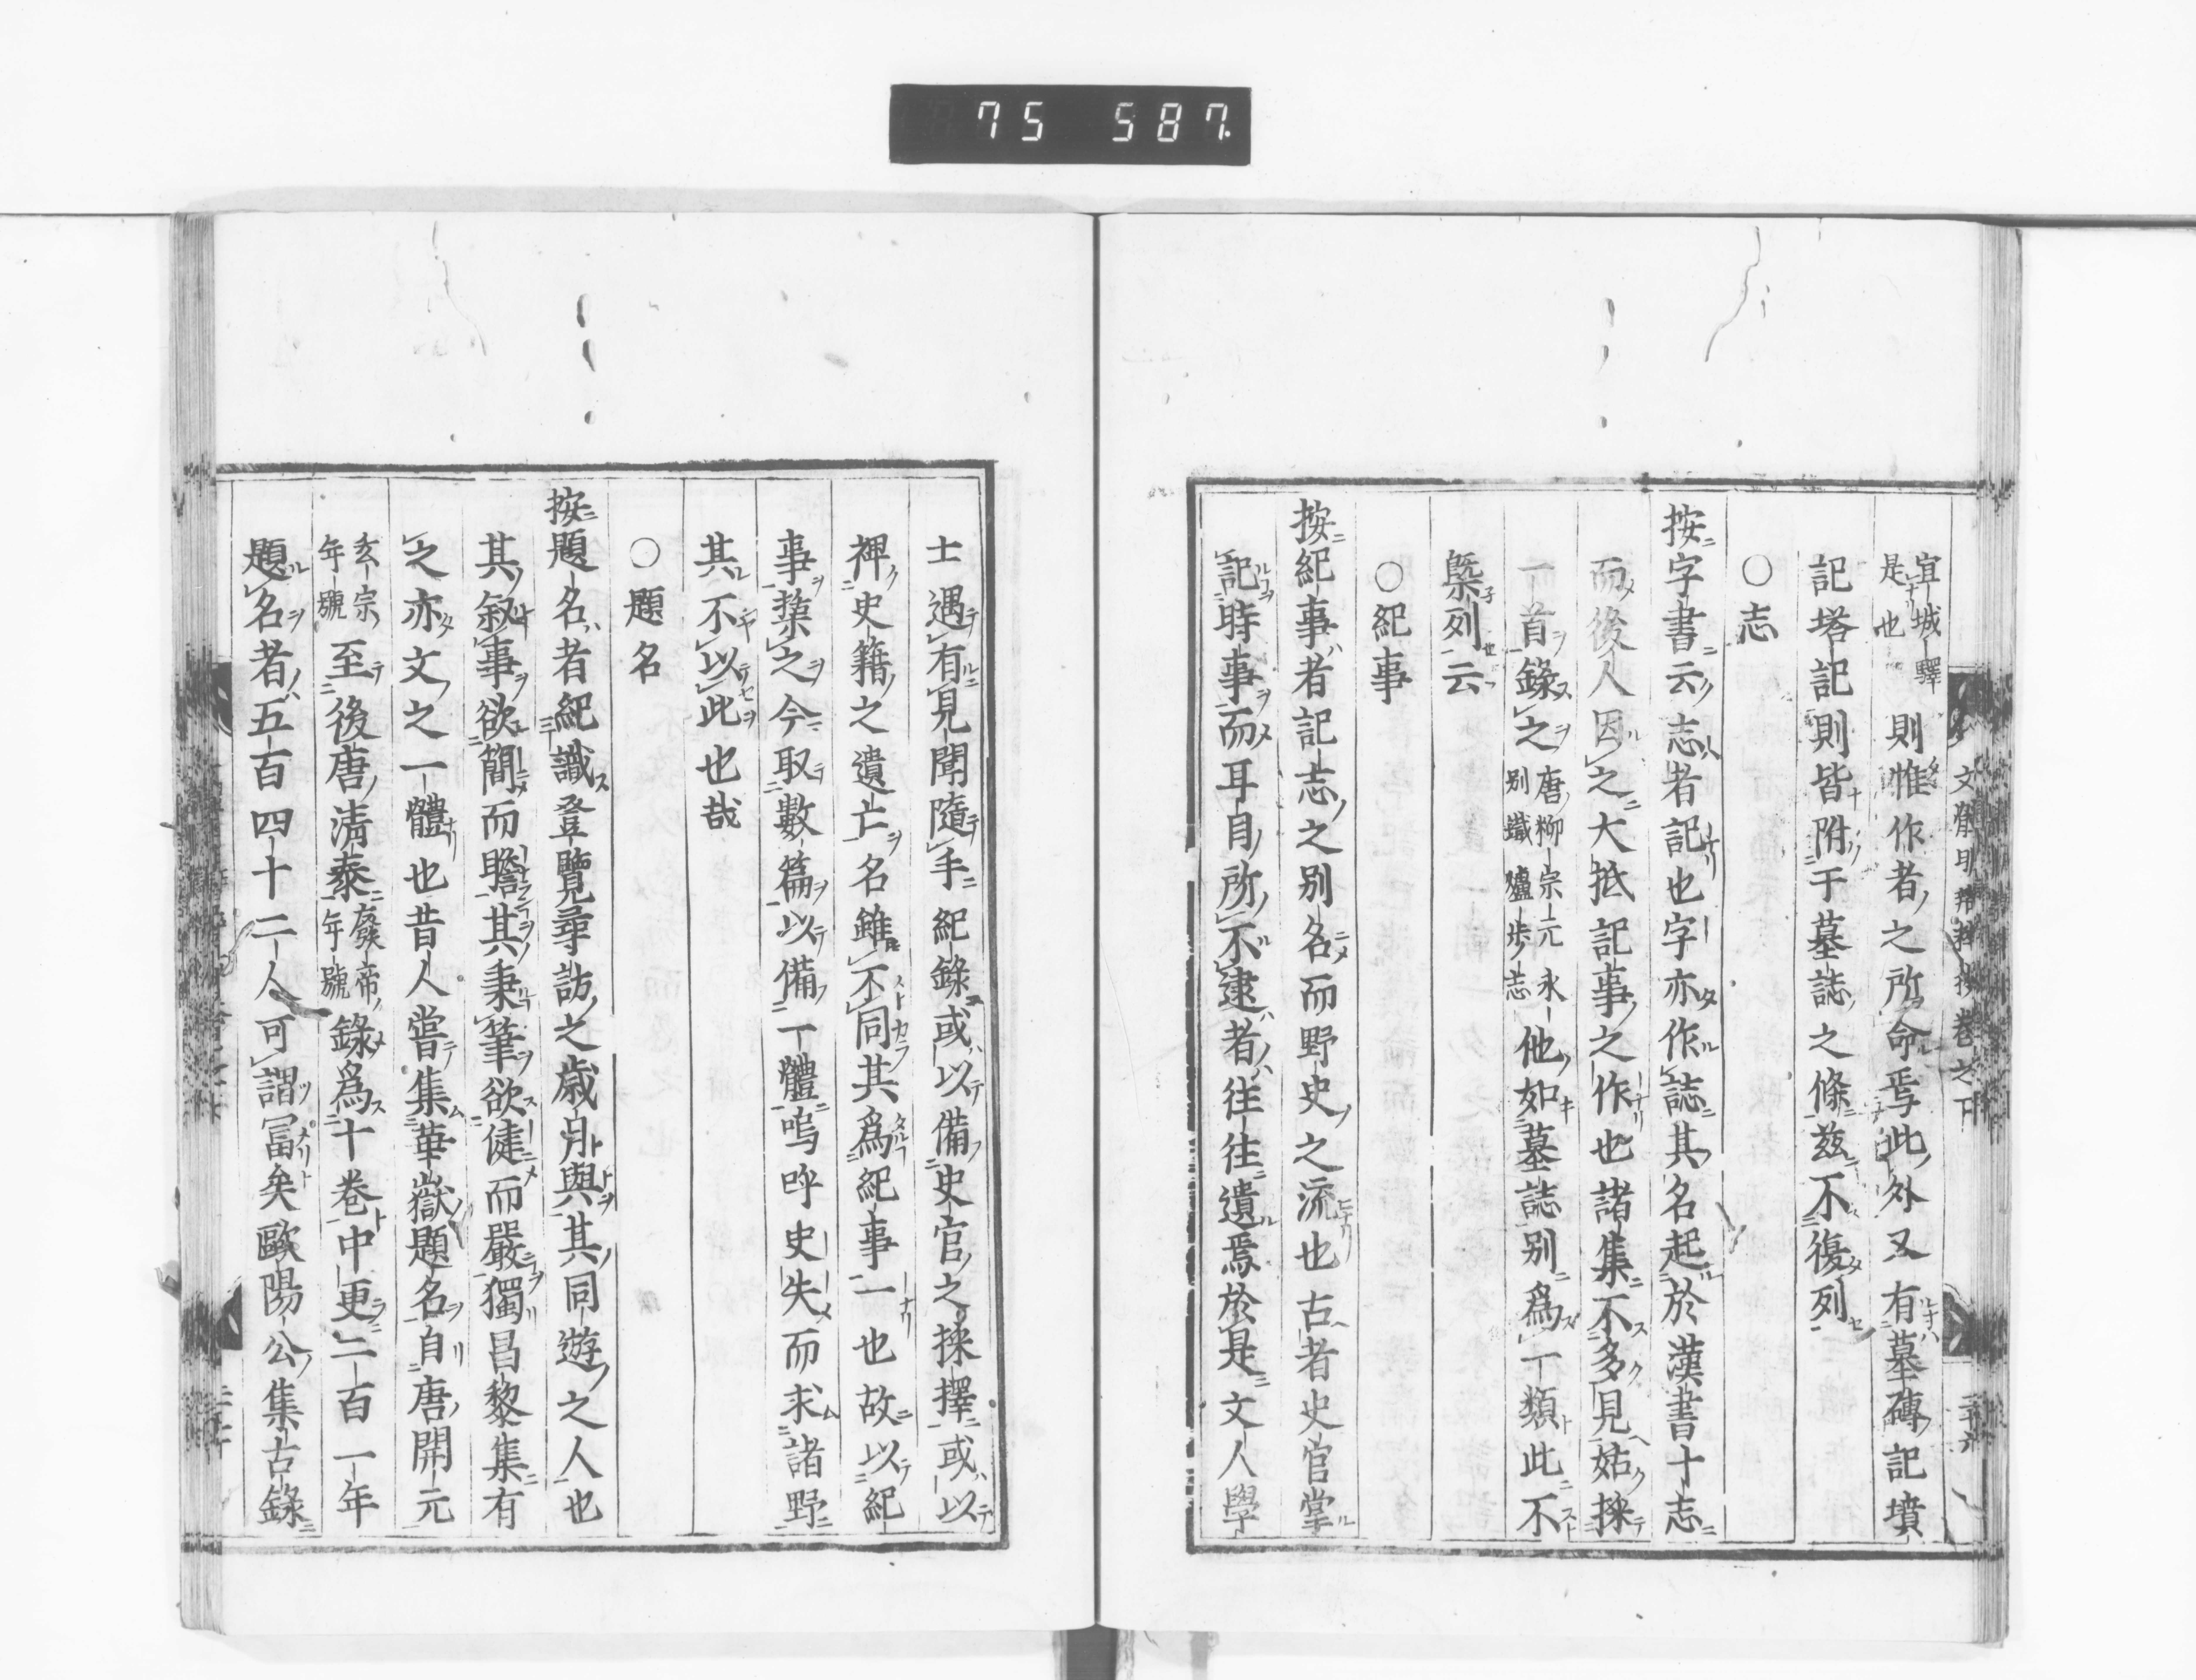 75 587
宜城驛
是也
則惟作者之所命焉此外又有墓磚記墳
記塔記則皆附于墓誌之條茲不復列
○志
按字書云志者記也字亦作誌其名起於漢書十志
而後人因之大抵記事之作也諸集不多見姑採
一首錄之
唐柳宗元永
別鐵爐步志
他如墓誌別爲一類此不
槩列云
○紀事
按紀事者記志之別名而野史之流也古者史官掌
記時事而耳目所不逮者往往遺焉於是文人學
文體明辯抄卷之下
士遇有見聞隨手紀錄或以備史官之採擇或以
裨史籍之遺亡名雖不同其爲紀事一也故以紀
事蘃之今取數篇以備一體嗚呼史失而求諸野
其不以此也哉
○題名
按題名者紀識登覽尋訪之歲月與其同遊之人也
其敘事欲簡而贍其秉筆欲健而嚴獨昌黎集有
之亦文之一體也昔人嘗集華嶽題名自唐開元
玄宗
年號
至後唐清泰
廢帝
年號
錄爲十卷中更二百一年
題名者五百四十二人可謂冨矣歐陽公集古錄